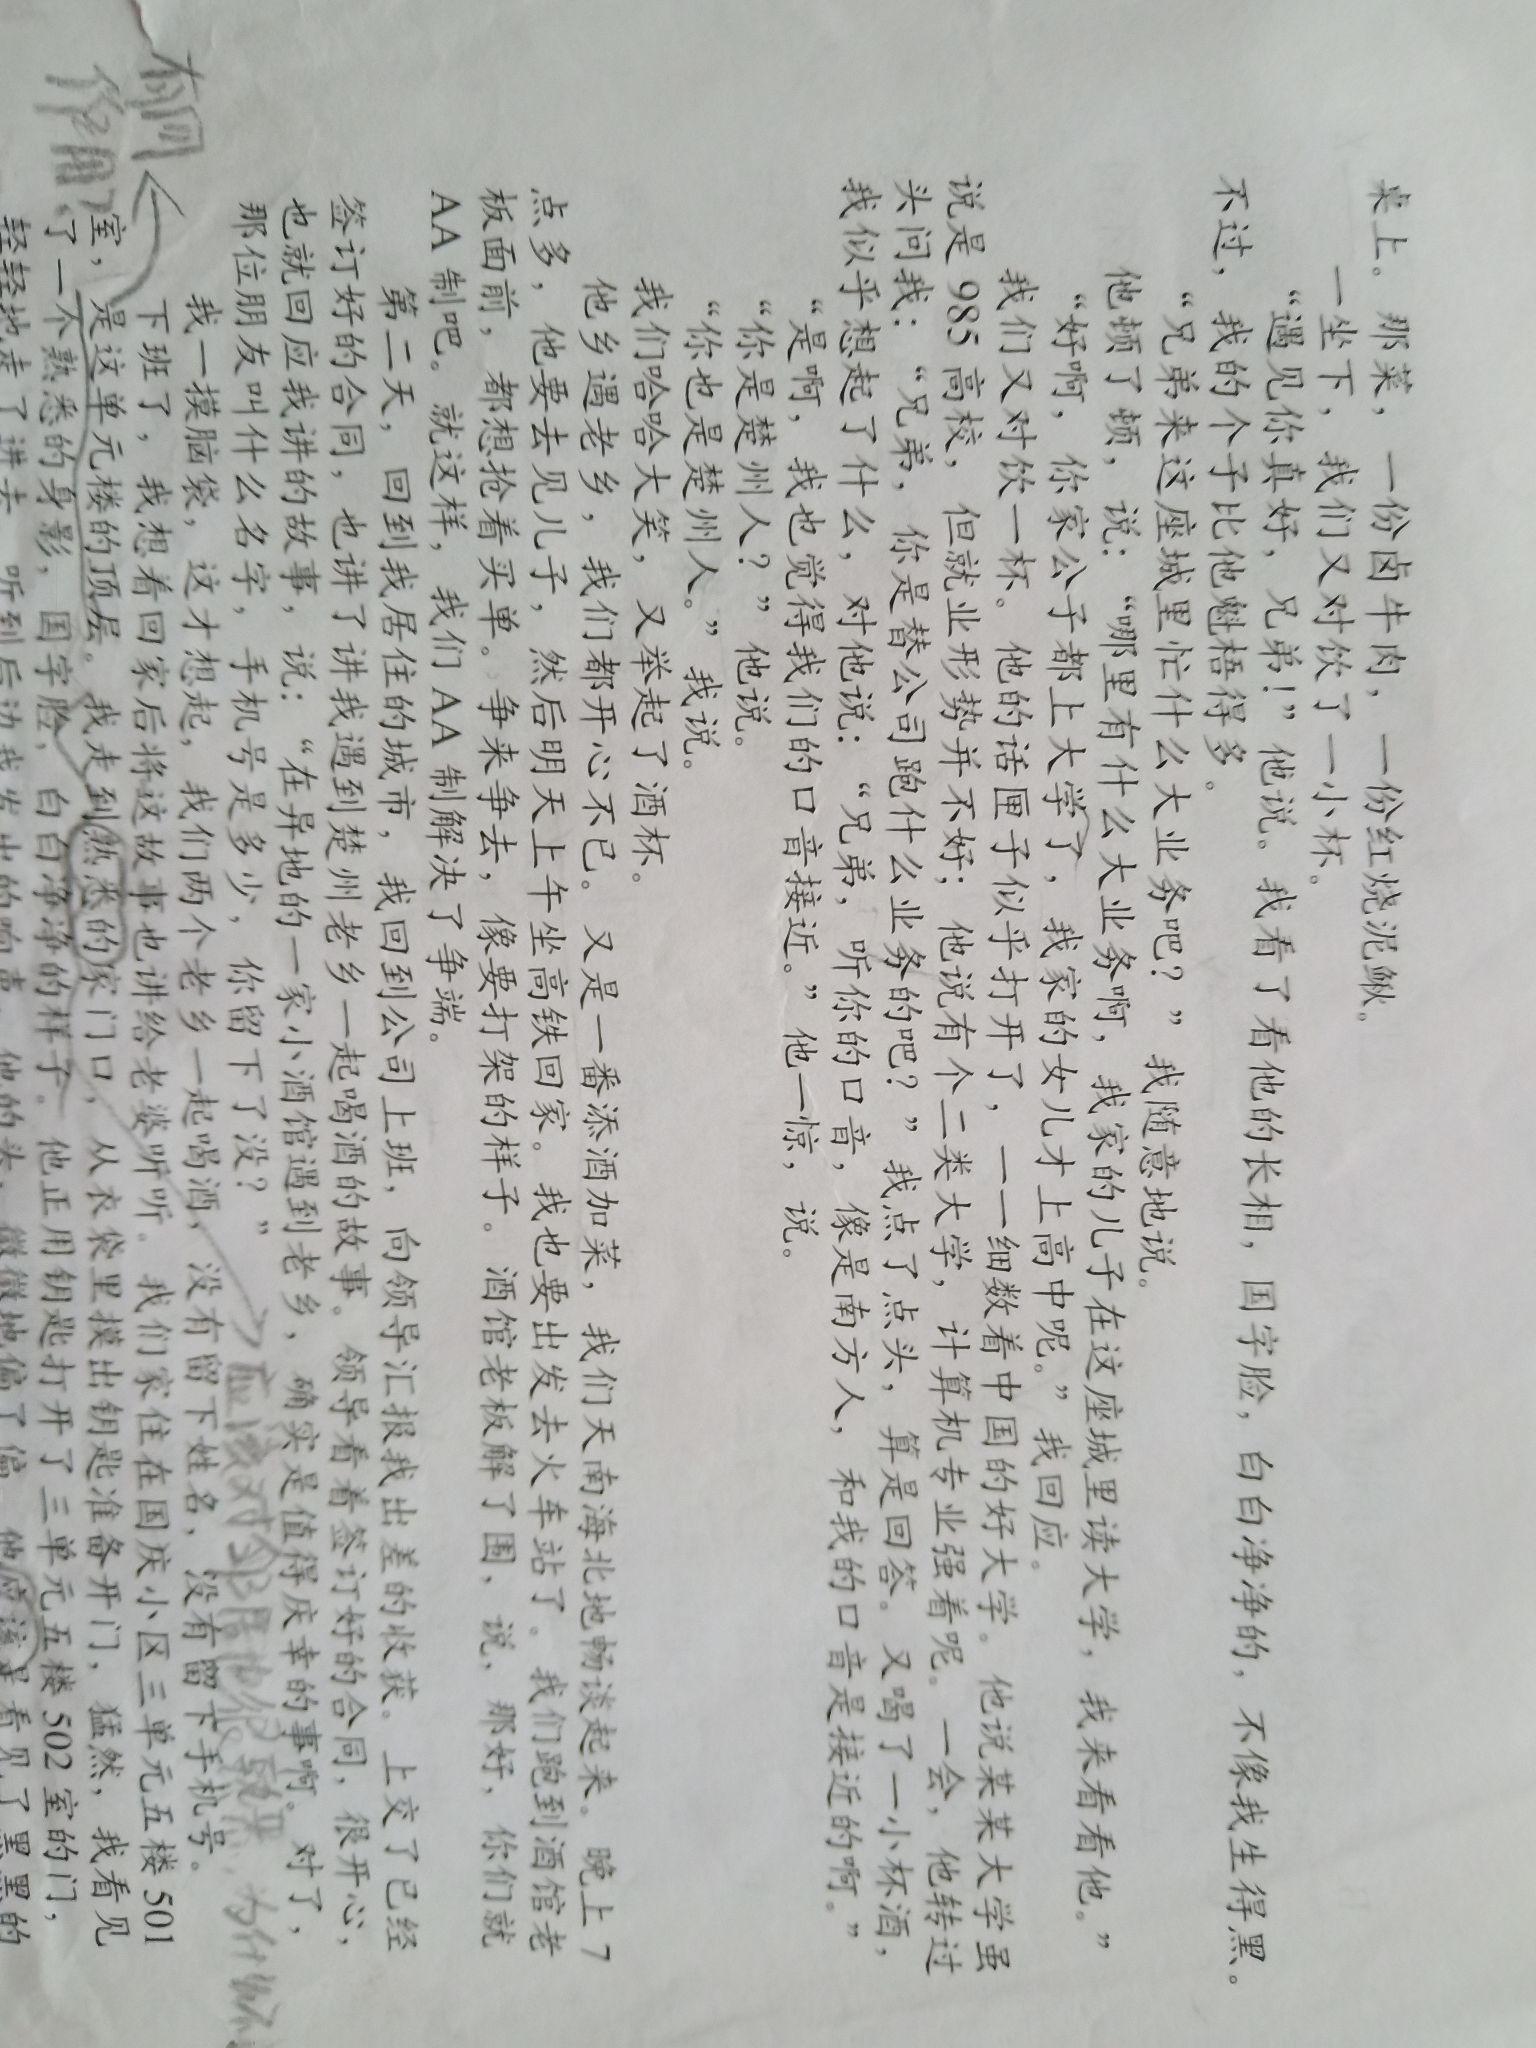 桌上。那菜，一份卤牛肉，一份红烧泥鳅。
一坐下，我们又对饮了一小杯。
“遇见你真好，兄弟！”他说。我看了看他的长相，国字脸，白白净净的，不像我生得黑。
不过，我的个子比他魁梧得多。
“兄弟来这座城里忙什么大业务吧？”我随意地说。
他顿了顿，说：“哪里有什么大业务啊，我家的儿子在这座城里读大学，我来看看他。”
“好啊，你家公子都上大学了，我家的女儿才上高中呢。”我回应。
我们又对饮一杯。他的话匣子似乎打开了，一一细数着中国的好大学。他说某某大学虽
说是 985 高校，但就业形势并不好；他说有个二类大学，计算机专业强着呢。一会，他转过
头问我：“兄弟，你是替公司跑什么业务的吧？”我点了点头，算是回答。又喝了一小杯酒，
我似乎想起了什么，对他说：“兄弟，听你的口音，像是南方人，和我的口音是接近的啊。”
“是啊，我也觉得我们的口音接近。”他一惊，说。
“你是楚州人？”他说。
“你也是楚州人。”我说。
我们哈哈大笑，又举起了酒杯。
他乡遇老乡，我们都开心不已。又是一番添酒加菜，我们天南海北地畅谈起来。晚上 7
点多，他要去见儿子，然后明天上午坐高铁回家。我也要出发去火车站了。我们跑到酒馆老
板面前，都想抢着买单。争来争去，像要打架的样子。酒馆老板解了围，说，那好，你们就
AA 制吧。就这样，我们 AA 制解决了争端。
第二天，回到我居住的城市，我回到公司上班，向领导汇报我出差的收获。上交了已经
签订好的合同，也讲了讲我遇到楚州老乡一起喝酒的故事。领导看着签订好的合同，很开心，
也就回应我讲的故事，说：“在异地的一家小酒馆遇到老乡，确实是值得庆幸的事啊。对了，
那位朋友叫什么名字，手机号是多少，你留下了没？”
我一摸脑袋，这才想起，我们两个老乡一起喝酒，没有留下姓名，没有留下手机号。
下班了，我想着回家后将这故事也讲给老婆听听。我们家住在国庆小区三单元五楼 501
室，是这单元楼的顶层。我走到熟悉的家门口，从衣袋里摸出钥匙准备开门，猛然，我看见
了一个熟悉的身影，国字脸，白白净净的样子。他正用钥匙打开了三单元五楼 502 室的门，
轻轻地走了进去。听到后边我发出的响声，他的头，微微地偏了偏，他应该是看见了黑黑的
有何
作用？